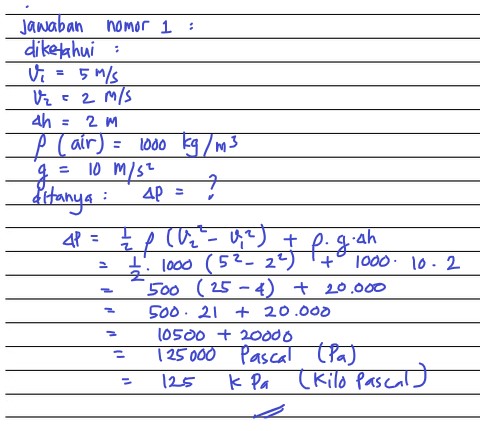 jawaban nomor 1 :
diketahui :
V₁ = 5 m/s
V₂ = 2 m/s
Δh = 2 m
ρ (air) = 1000 kg/m³
g = 10 m/s²
ditanya : ΔP = ?
ΔP = 1/2 ρ (V₂² - V₁²) + ρ. g. Δh
= 1/2. 1000 (5² - 2²) + 1000. 10. 2
= 500 (25 - 4) + 20.000
= 500. 21 + 20.000
= 10500 + 20000
= 125000 Pascal (Pa)
= 125 kPa (Kilo Pascal)